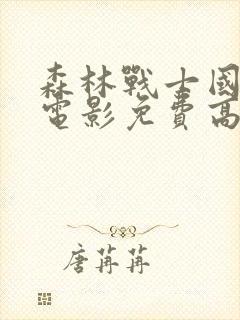 森林戰士國
電影免費高
唐苒苒